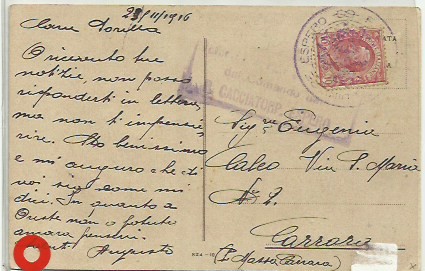 23/11/1916
Cara Sorella
O ricevuto tue
notizie, non posso
risponderti in lettera,
ma non t'impensie
rire. Sto benissimo
e mi auguro che di
voi sia come mi
dici. In quanto a
Oreste non o potuto
ancora
Augusto
ESPERO
CACCIATORP.
Eugenia
Via S. Maria
Nº 2
Carrara
(Massa Carrara)